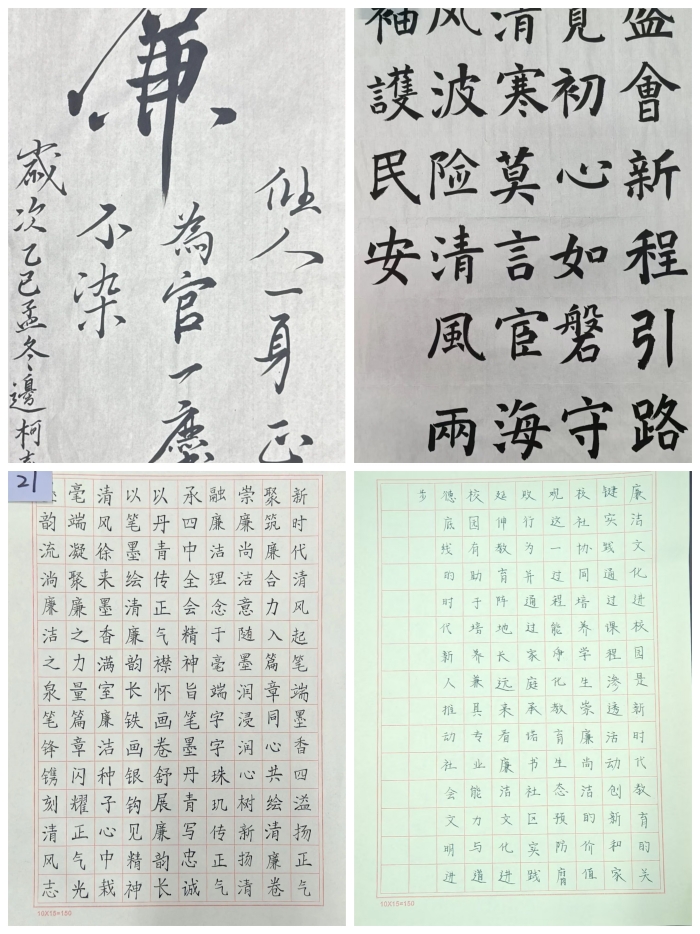 廉
做人一身正
為官一塵
不染
歲次乙巳孟冬邊柯
盛會新程引路
見初心如磐守
清寒莫言宦海
风波险清風兩
袖護民安
21
新时代清风起笔端墨香四溢扬正气
聚筑廉合力入篇章同心共绘清廉卷
崇廉尚洁意随墨润浸润心树新扬清
融廉洁理念于毫端字字珠玑传正气
承四中全会精神旨笔墨丹青写忠诚
以丹青传正气襟怀画卷舒展廉韵长
以笔墨绘清廉韵长铁画银钩见精神
清风徐来墨香满室廉洁种子心中栽
毫端凝聚廉之力量篇章闪耀正气光
韵流淌廉洁之泉笔锋镌刻清风志
10X15=150
廉洁文化进校园是新时代教育的关
键实践通过课程渗透活动创新和家
校社协同培养学生崇廉尚洁的价值
观这一过程能净化教育生态预防腐
败行为并通过家庭承诺书社区实践
延伸教育阵地长远来看廉洁文化进
校园有助于培养兼具专业能力与道
德底线的时代新人推动社会文明进
步
10X15=150